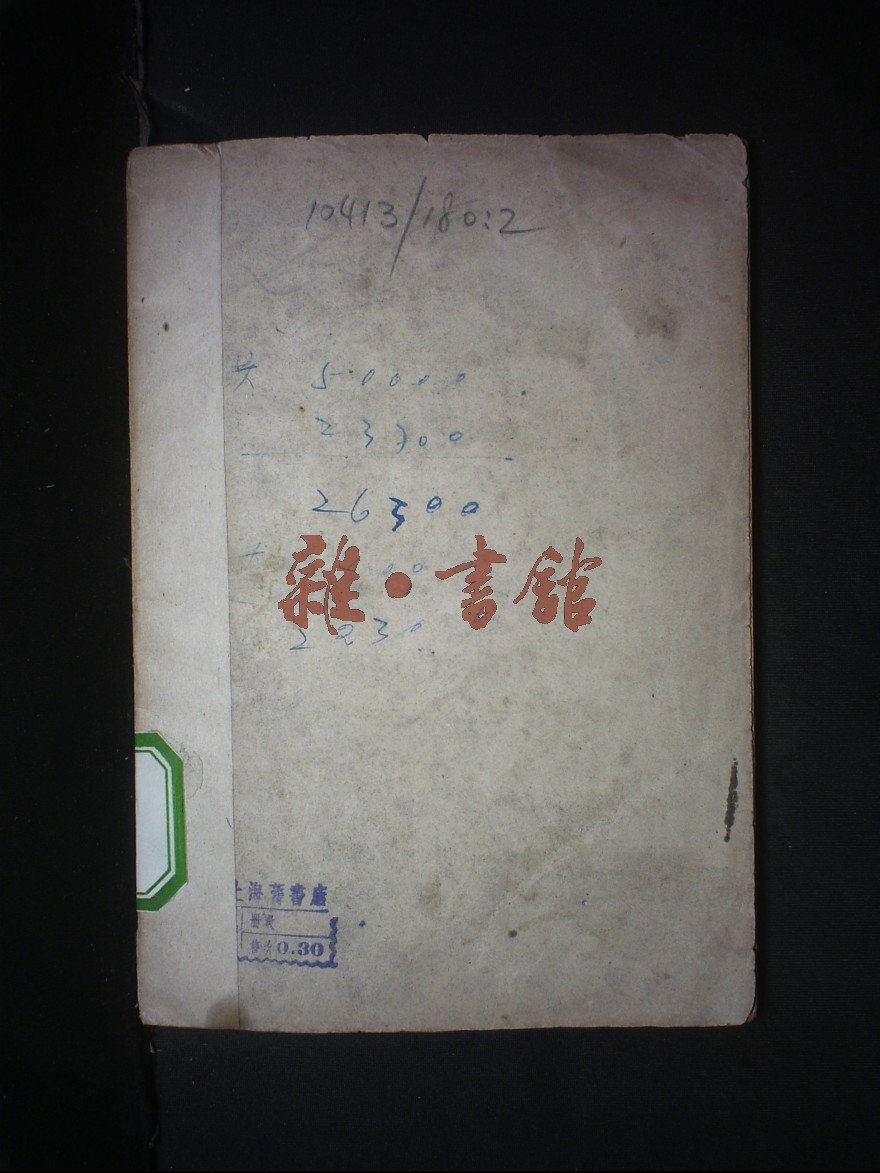 10413/180:2
共 50000
23700
26300
雜·書館
2230
上海舊書店
冊數
售價 0.30